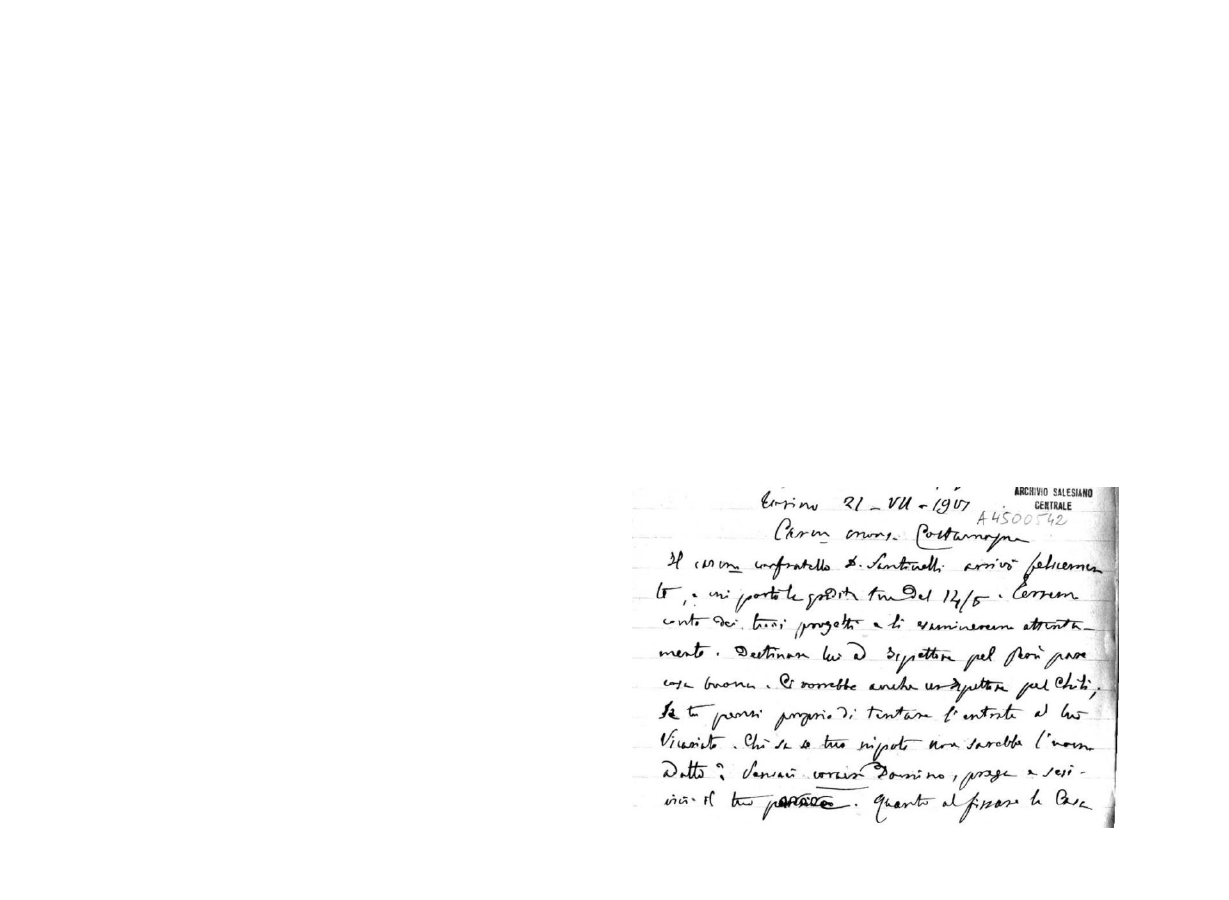 ARCHIVIO SALESIANO
CENTRALE
A4500542
Torino 21-VII-1901
Carm mons. Costamagna
Il carm confratello D. Santinelli arrivò felicemen
te, e mi portò la gradita tua del 14/5. Terrem
conto dei tuoi progetti e li esamineremo attenta-
mente. Destinare lui ad Ispettore pel Perù pare
cosa buona. Ci vorrebbe anche un Ispettore pel Chilì,
se tu pensi proprio di tentare l'entrata al tuo
Vicariato. Chi sa se tuo nipote non sarebbe l'uom
adatto? Pensaci coram Domino, prega e scri-
vici il tuo. Quanto al fissare la Casa